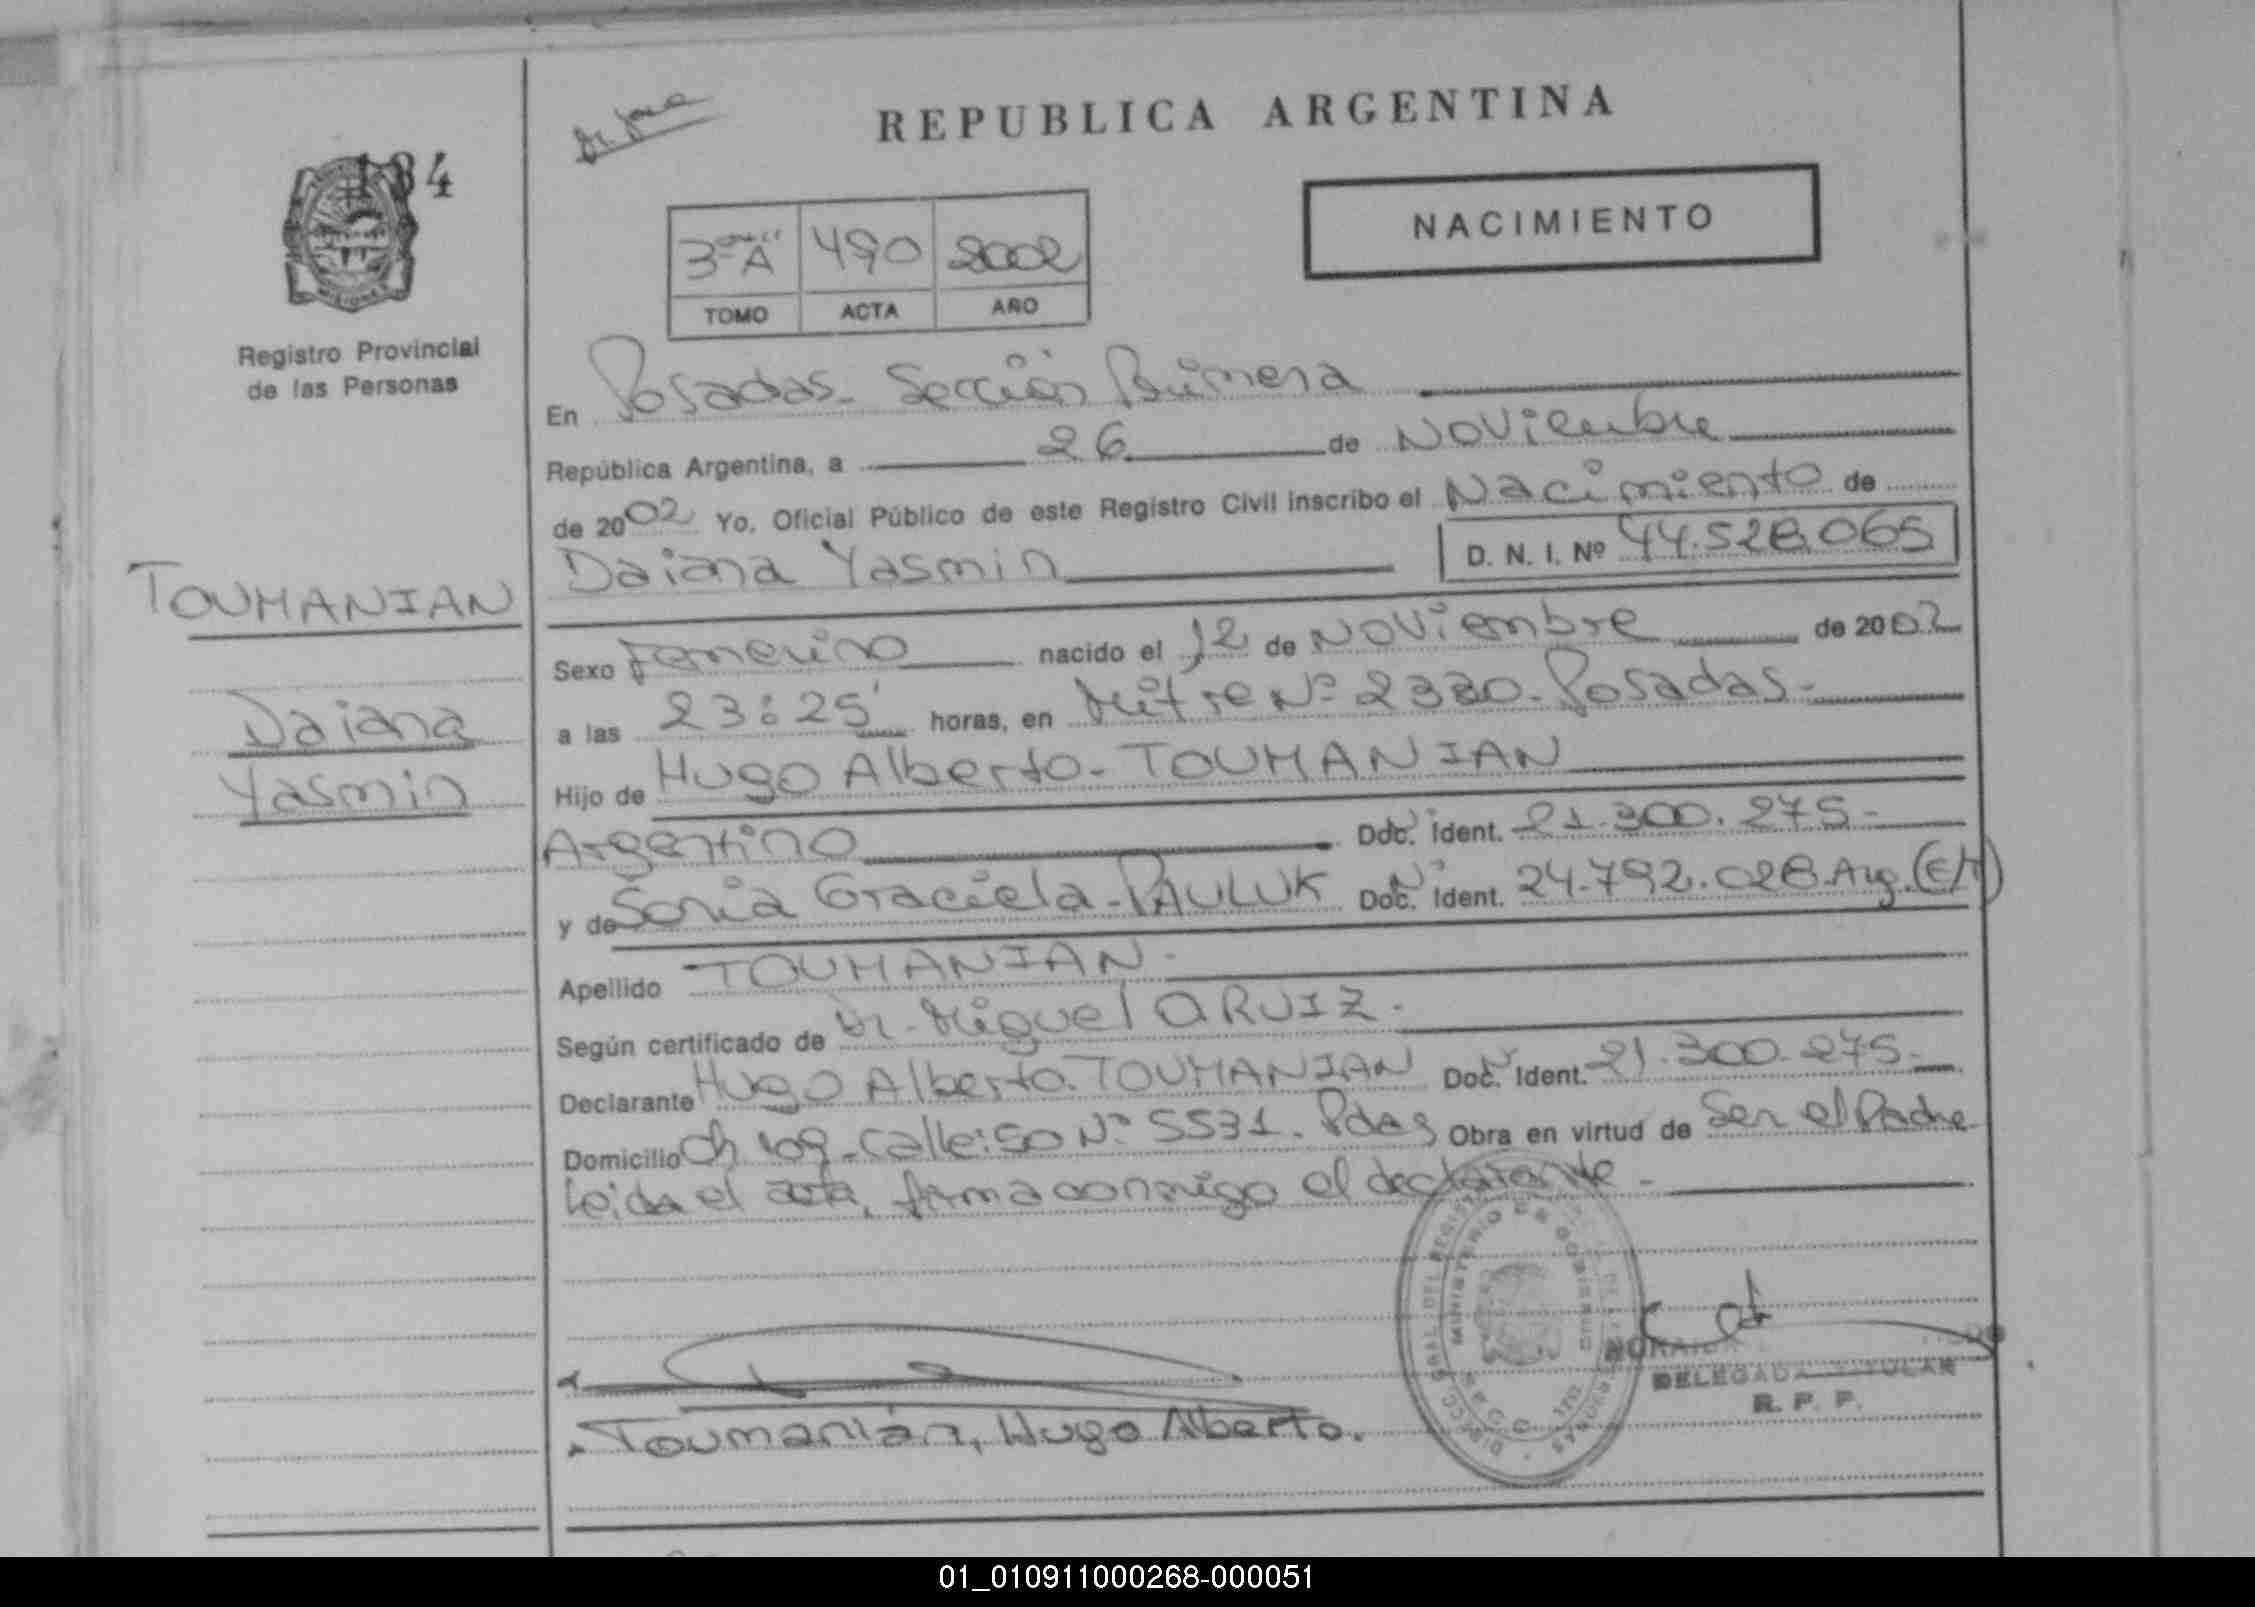 184
REPUBLICA ARGENTINA
NACIMIENTO
3º "A" 490 2002
TOMO ACTA AÑO
Registro Provincial
de las Personas
En Posadas - Sección Primera
República Argentina, a 26 de Noviembre
de 2002 Yo, Oficial Público de este Registro Civil inscribo el Nacimiento de
Daiana Yasmin D. N. I. Nº 44.528.065
TOUMANIAN
Daiana
Yasmin
Sexo Femenino nacido el 12 de Noviembre de 2002
a las 23:25' horas, en Mitre Nº 2330 - Posadas -
Hijo de Hugo Alberto - TOUMANIAN
Argentino Doc. Nº Ident. 21.300.275 -
y de Sonia Graciela - PAULUK Doc. Nº Ident. 24.792.028 Arg.
Apellido TOUMANIAN -
Según certificado de Dr. Miguel ARUIZ -
Declarante Hugo Alberto - TOUMANIAN Doc. Nº Ident. 21.300.275 -
Domicilio Ch 109 - Calle: 50 Nº 5531 - Pdas Obra en virtud de Ser el Padre
Leida el acta, firma conmigo el declarante -
MINISTERIO DE GOBIERNO
DELEGADA TITULAR
R. P. P.
Toumanián, Hugo Alberto.
01_010911000268-000051